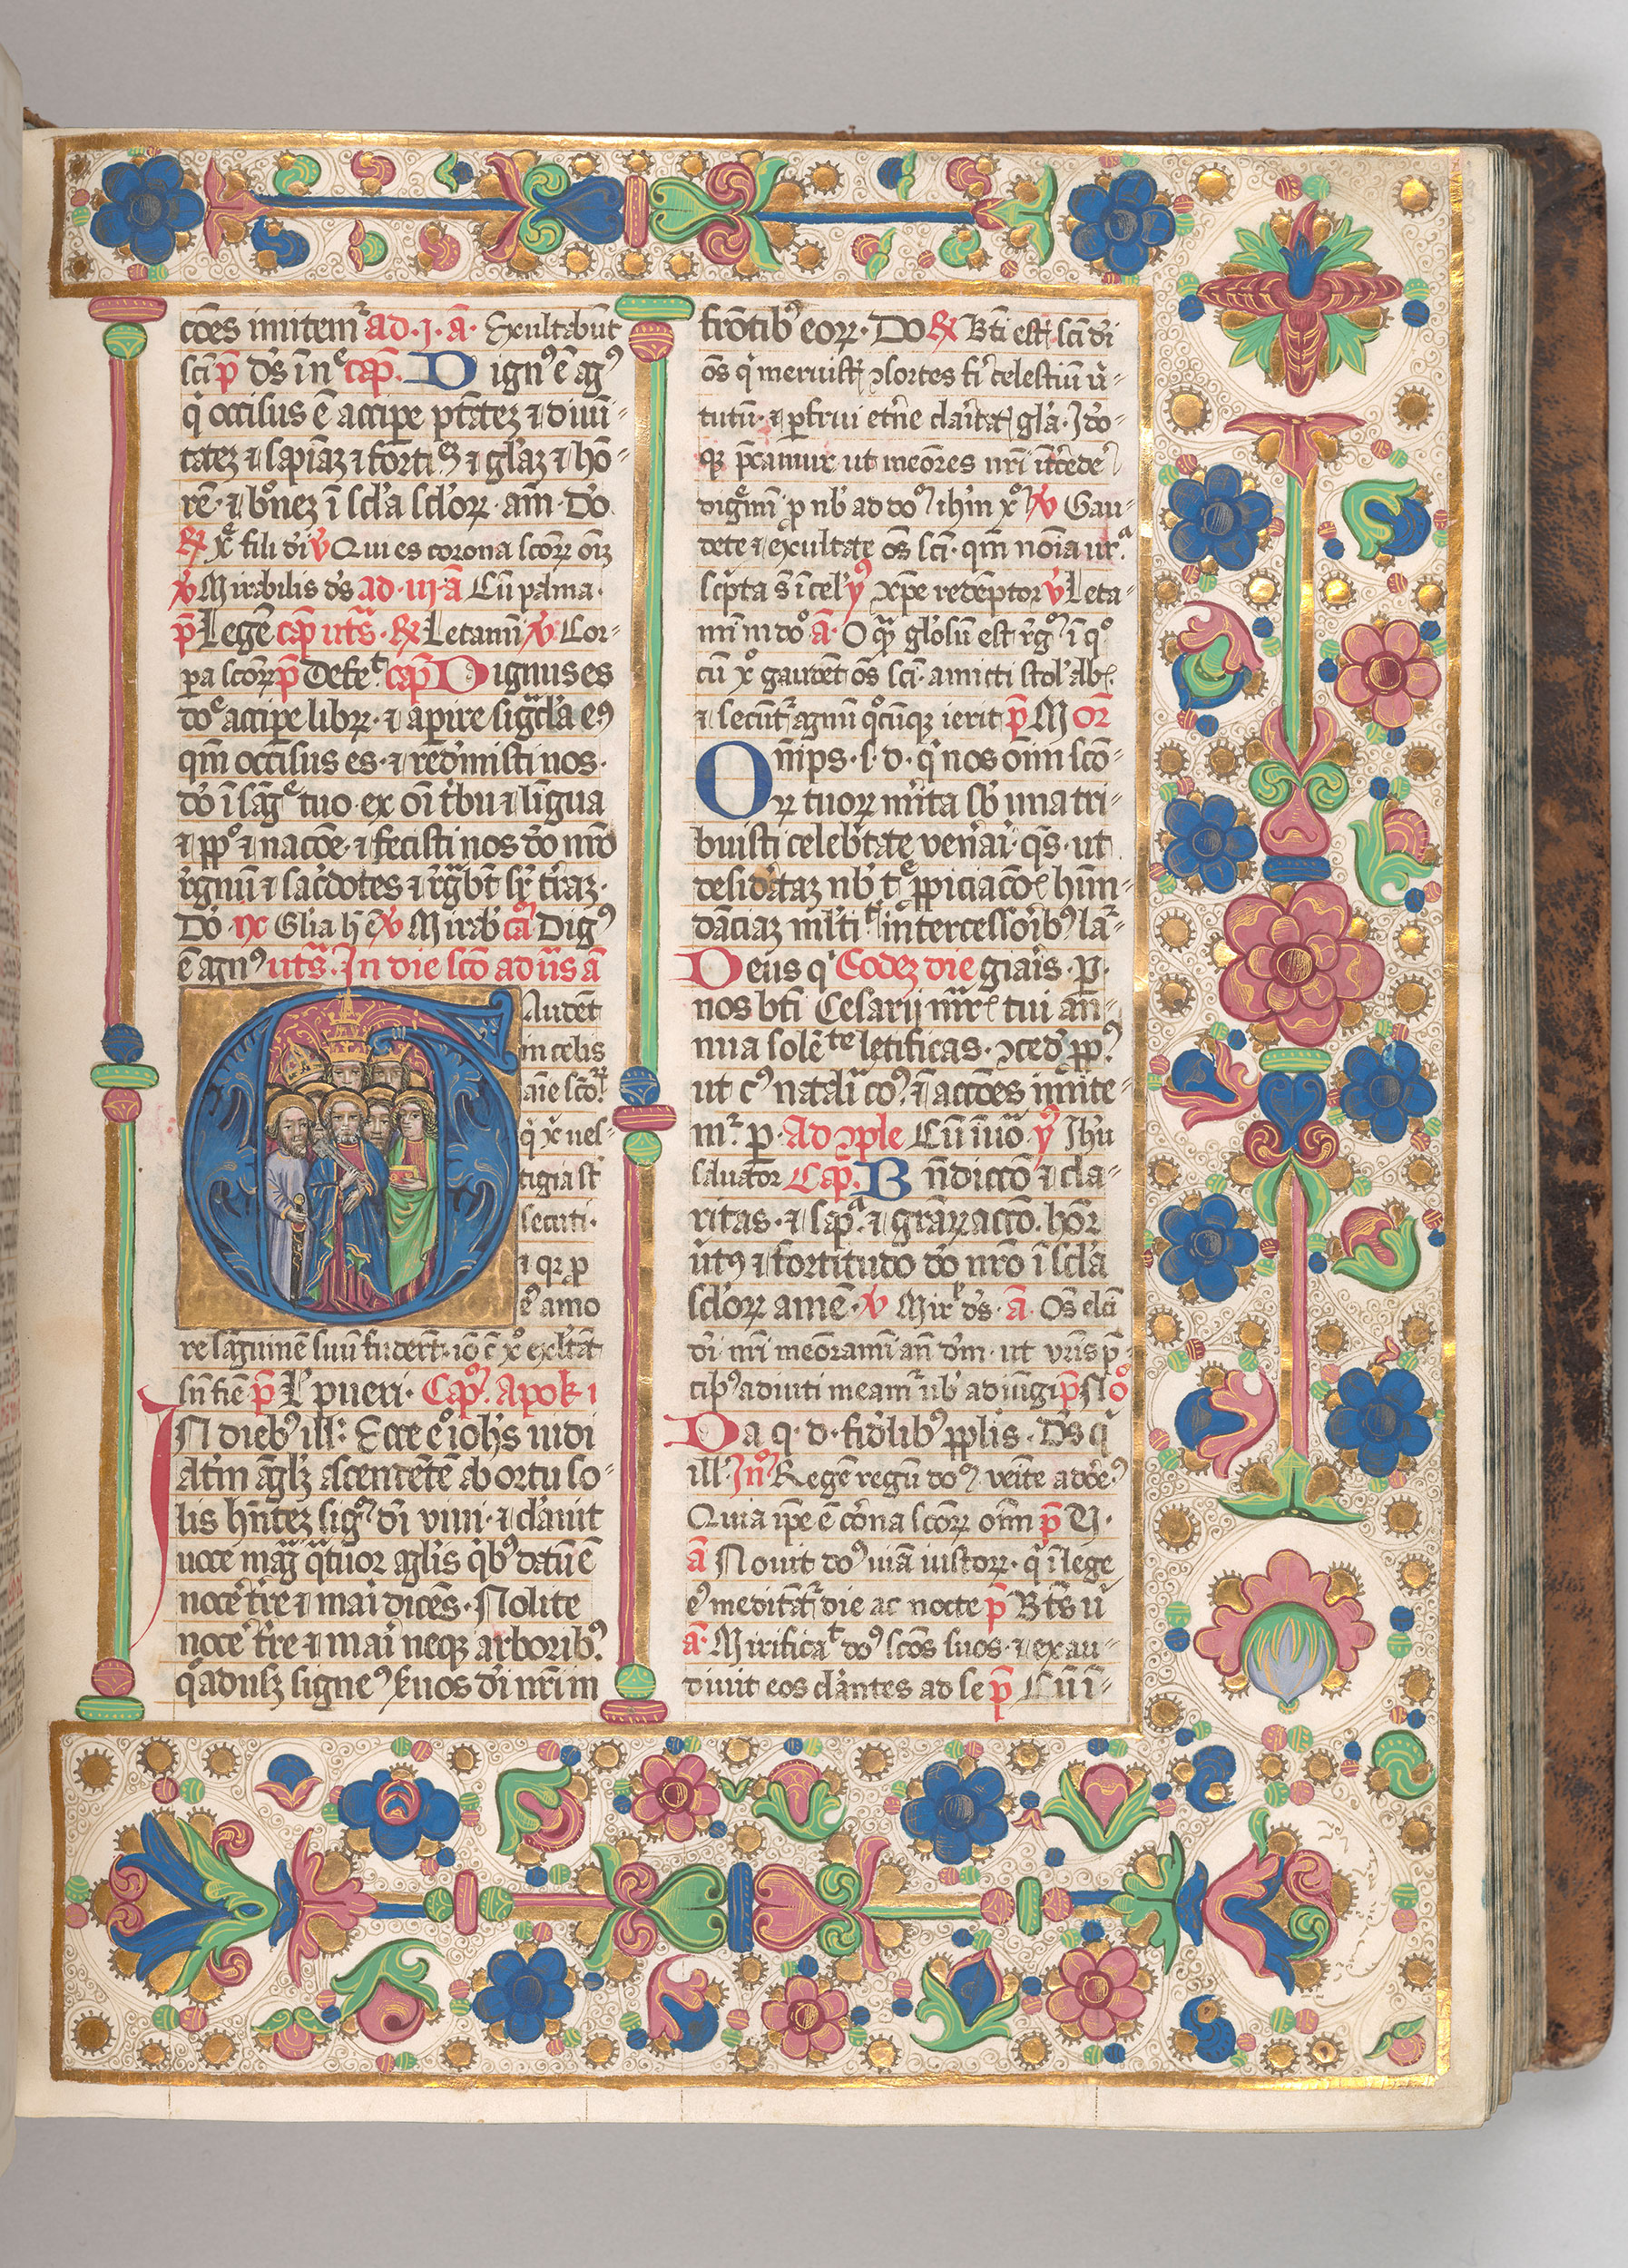 cōes imitemᷣ ad · j · ā · Exultabūt
sci p̄ ds̄ in nᵉ cap̄. Dignꝰ ē agꝰ
qͥ occisus ē accipe ptātez ⁊ diuī-
tatez ⁊ sapiāz ⁊ fortiS ⁊ glāz ⁊ hō-
rē · ⁊ bn̄ez ī scl̄a scl̄oꝝ · am̄ · Do
℟ xᵉ fili di ℣ Qui es corona scoꝝ oīz
℣ Mirabilis ds̄ ad · iij · ā Cū palma ·
p̄ Legē cap̄ uts̄ · ℟ Letamī ℣ Cor-
pa scoꝝ p̄ Defeᵗ cap̄ Dignus es
doᵉ accipe libꝝ · ⁊ aperire sigͣcl̄a eꝰ
qm̄ occisus es · ⁊ redimisti nos ·
dō ī sāgᵉ tuo · ex oī tbu ⁊ lingua
⁊ ppᵒ ⁊ nacōe · ⁊ fecisti nos dō nr̄o
rgnū ⁊ sacdotes ⁊ rgͣbt sr tr̄az ·
Dō · ix Glia h̄ ē ℣ Mirab ca Digꝰ
ē agnꝰ uts̄ · In die sco ad us̄ ā
Gaudēt
in celis
aīe scoꝝ
qͥ xͥ ues-
tigia st̄
secuti ·
⁊ qꝛ p
eꝰ amo
re sāguinē suū fudert · iō c̄ xᵒ exltāt
sn̄ fīē p̄ Lᵉ pueri · Capᵒ · Apok 1
IN diebꝰ ill : Ecce eᵒ iohs uidi
altm āglz ascentētē ab ortu so-
lis hn̄tez sigᵐ di viui · ⁊ clauit
uoce magᷓ qͣtuor aglis qͥbꝰ datū ē
nocē tr̄e ⁊ mai dicēs · Nolite
nocᵉ tr̄e ⁊ mai neqꝫ arboribꝰ ·
qͦadusꝫ signeꝰ suos di nr̄i in
frōtibꝰ eoꝝ · Do ℟ Bti est sci di
ōs qͥ meruistꝭ ꝯsortes fiᷣ celestiū ū-
tutū · ⁊ ꝑfrui etne claitatꝭ gla · Ido-
qꝫ p̄camur ut meōres nri ītcedeᵉ
digᵉmī ꝓ nb ad doᵐ ihm xᵐ ℣ Gau-
dete ⁊ exultate ōs sci · qm̄ noīa urᵃ
scpta s̄ ī celꝭ y̾ xp̄e redēptor ℣ Leta-
minī ī dōᵒ ā · O qᷓ glōsū est rgᵐ ī qᵒ
cū xᵒ gaudēt ōs sci · amicti stol alb ·
⁊ secūtᷣ agnū qᵒcūqꝫ ierit p̄ M or̄
Omīps · s · d · qͥ nos oīm sco-
ꝝ tuoꝝ mīta sb una tri-
buisti celebtāte venai · qs̄ · ut
desidataz nb tᵉ ꝓpiciacōꝭ hūn-
dāciaz mltiᵗ intercessoībꝰ la ·
Deus qͥ Eodez die giais · p ·
nos bti Cesarij mr̄ꝭ tui an-
nua solēᵗᵉ letificas · ꝯcedᵉ ꝓpᵒ
ut cꝰ natalī coꝰ · ēt accōes imite-
mᷣ p · Ad ꝯple Cū iuō · y̾ Ihu
saluator Cap̄ · Bn̄dictō ⁊ cla-
ritas · ⁊ sapᵃ ⁊ graꝝ actō · hōr
ūtꝰ ⁊ fortitudo dō nr̄o ī scl̄a
scl̄oꝝ amē · ℣ Mirᵇ ds̄ · ā · Os̄ elci
di nri meōramī añ dm · ut vr̄is p̄-
cibꝰ adiuti meamᷣ ub adiūgi p̄s Nōᵒ
Da q · d · fidlibꝰ ꝓplis · Ds̄ qͥ
ill · Inᵒ Regē regū doᵐ veite adoeꝰ
Quia ip̄e ē corna scoꝝ oīm p̄ V ·
ā Nouit doꝰ uiā iustoꝝ · qͥ ī lege
eꝰ meditātᷣ die ac nocte p̄ Bts̄ ū
ā · Mirificaᵗ doꝰ scos suos · ⁊ exau-
diuit eos clātes ad se p̄ Cū ī-